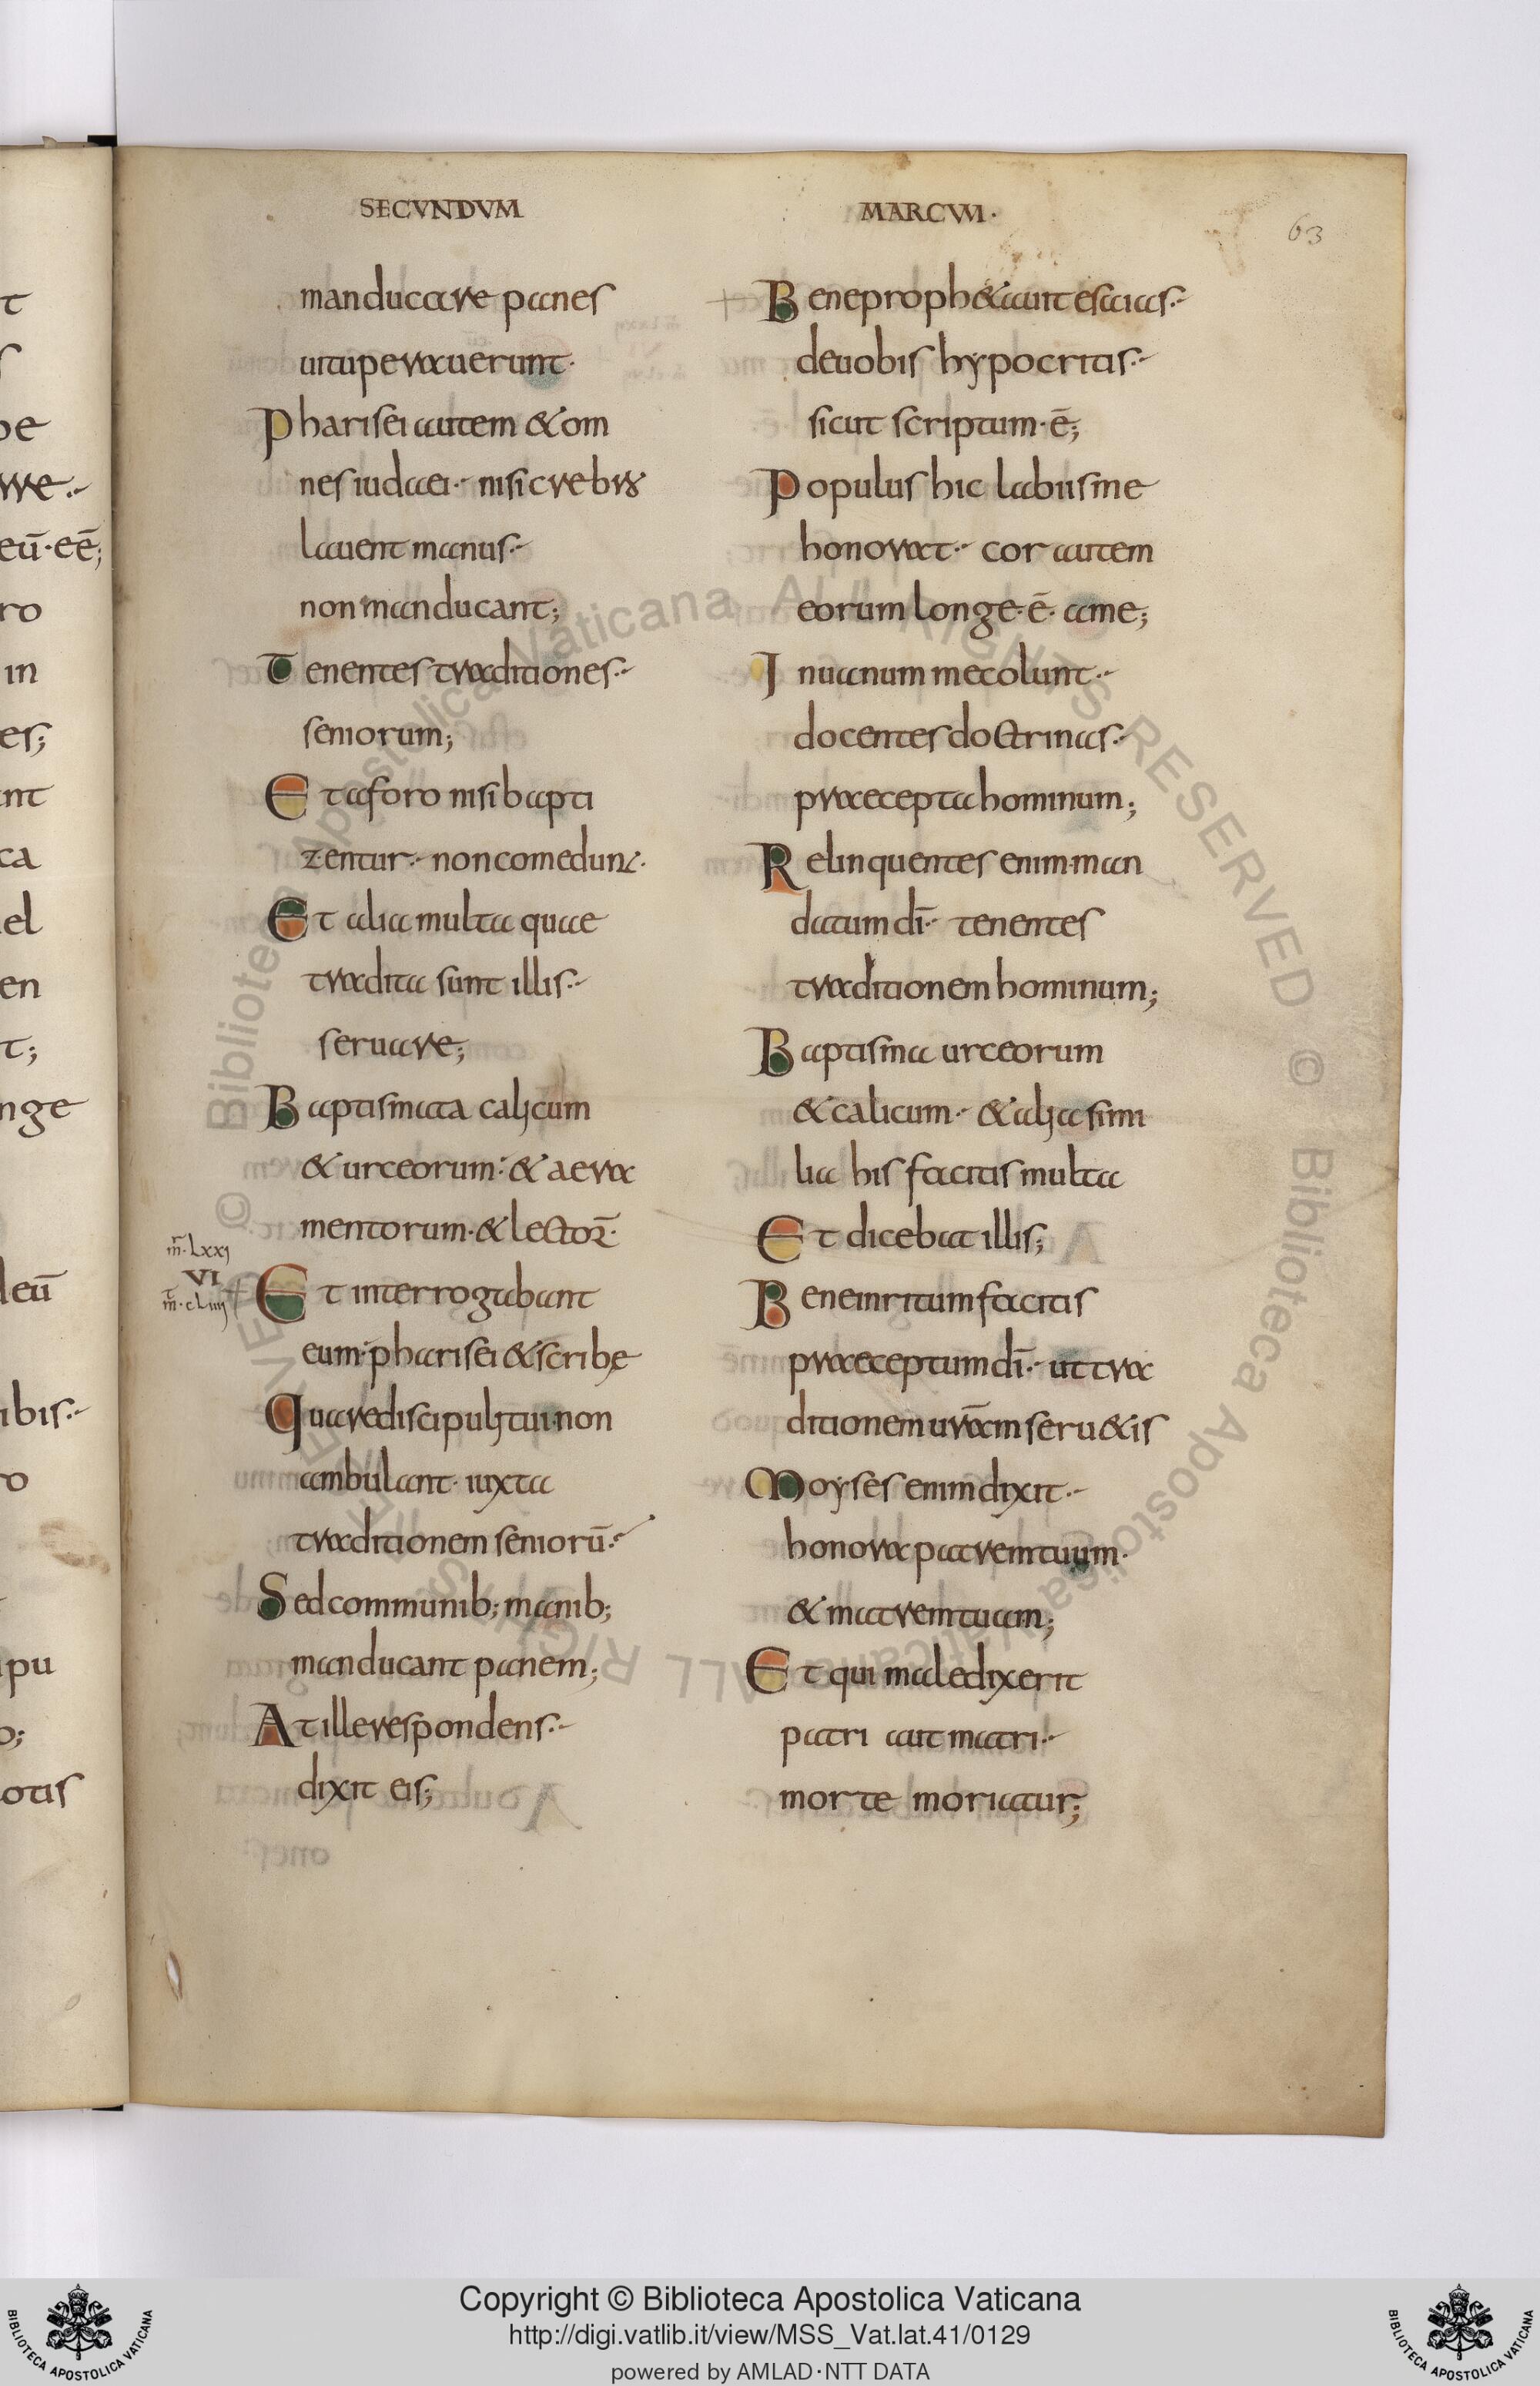 SECVNDVM
manducare panes
uituperauerunt·
Pharisei autem & om
nes iudaei·- nisi crebro
lauent manus·-
non manducant;
Tenentes traditiones·-
seniorum;
Et a foro nisi bapti
zentur·- non comedunt·
Et alia multa quae
tradita sunt illis·-
seruare;
Baptismata calicum
& urceorum·- & aera
mentorum· & lector̄·
m̄·Lxxi
VI
m̄·cLiiii
Et interrogabant
eum·- pharisei & scribę
Quare discipuli tui non
ambulant· iuxta
traditionem senioru̅·-
Sed communib; manib;
manducant panem;
At ille respondens·-
dixit eis;
MARCUM·
63
Bene proph&auit esaias·-
de uobis hypocritis·-
sicut scriptum· ē;
Populus hic labiis me
honorat·- cor autem
eorum longe· ē· a me;
In uanum me colunt·-
docentes doctrinas·-
praecepta hominum;
Relinquentes enim man
datum dī·- tenentes
traditionem hominum;
Baptisma urceorum
& calicum·- & alia simi
lia his facitis multa
Et dicebat illis;
Bene inritum facitis
praeceptum dī·- ut tra
ditionem urām seru&is
Moyses enim dixit·-
honora patrem tuum·
& matrem tuam;
Et qui maledixerit
patri aut matri·-
morte moriatur;
t
s
pe
rre·-
eū·eē;
ro
in
es;
nt
ca
el
en
t;
nge
leū
ibis·-
ro
ipu
o;
otis
© Biblioteca Apostolica Vaticana ALL RIGHTS RESERVED © Biblioteca Apostolica Vaticana ALL RIGHTS RESERVED
BIBLIOTECA APOSTOLICA VATICANA
Copyright © Biblioteca Apostolica Vaticana
http://digi.vatlib.it/view/MSS_Vat.lat.41/0129
powered by AMLAD·NTT DATA
BIBLIOTECA APOSTOLICA VATICANA